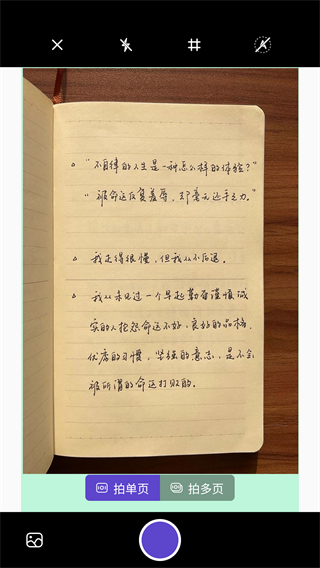 。"不自律的人生是一种怎么样的体验?"
"被命运反复羞辱，却毫无还手之力。"
。我走得很慢，但我从不后退。
。我从未见过一个早起勤奋谨慎诚
实的人抱怨命运不好，良好的品格，
优良的习惯，坚强的意志，是不会
被所谓的命运打败的。
拍单页 拍多页